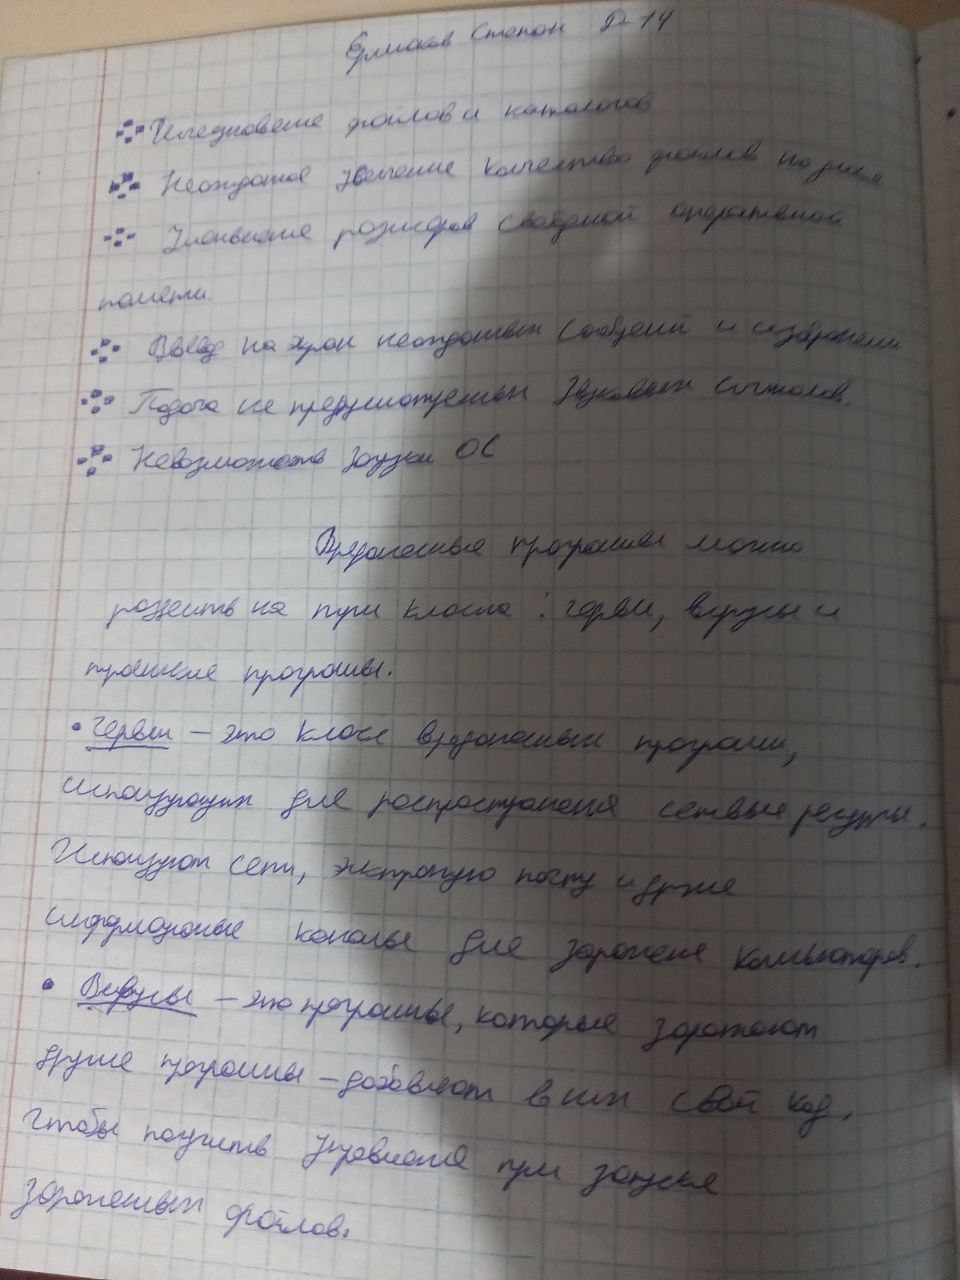 Ермаков Степан Д-14
Исчезновение файлов и каталогов
Неожиданное увеличение количество файлов на диске
Уменьшение размеров свободной оперативной
памяти.
Вывод на экран неожиданных сообщений и изображений
Подача не предусмотренных звуковых сигналов.
Невозможность загрузки ОС
Вредоносные программы можно
разделить на три класса: черви, вирусы и
троянские программы.
• Черви – это класс вредоносных программ,
использующих для распространения сетевые ресурсы.
Используют сети, электронную почту и другие
информационные каналы для заражения компьютеров.
• Вирусы – это программы, которые заражают
другие программы – добавляют в них свой код,
чтобы получить управление при запуске
зараженных файлов.